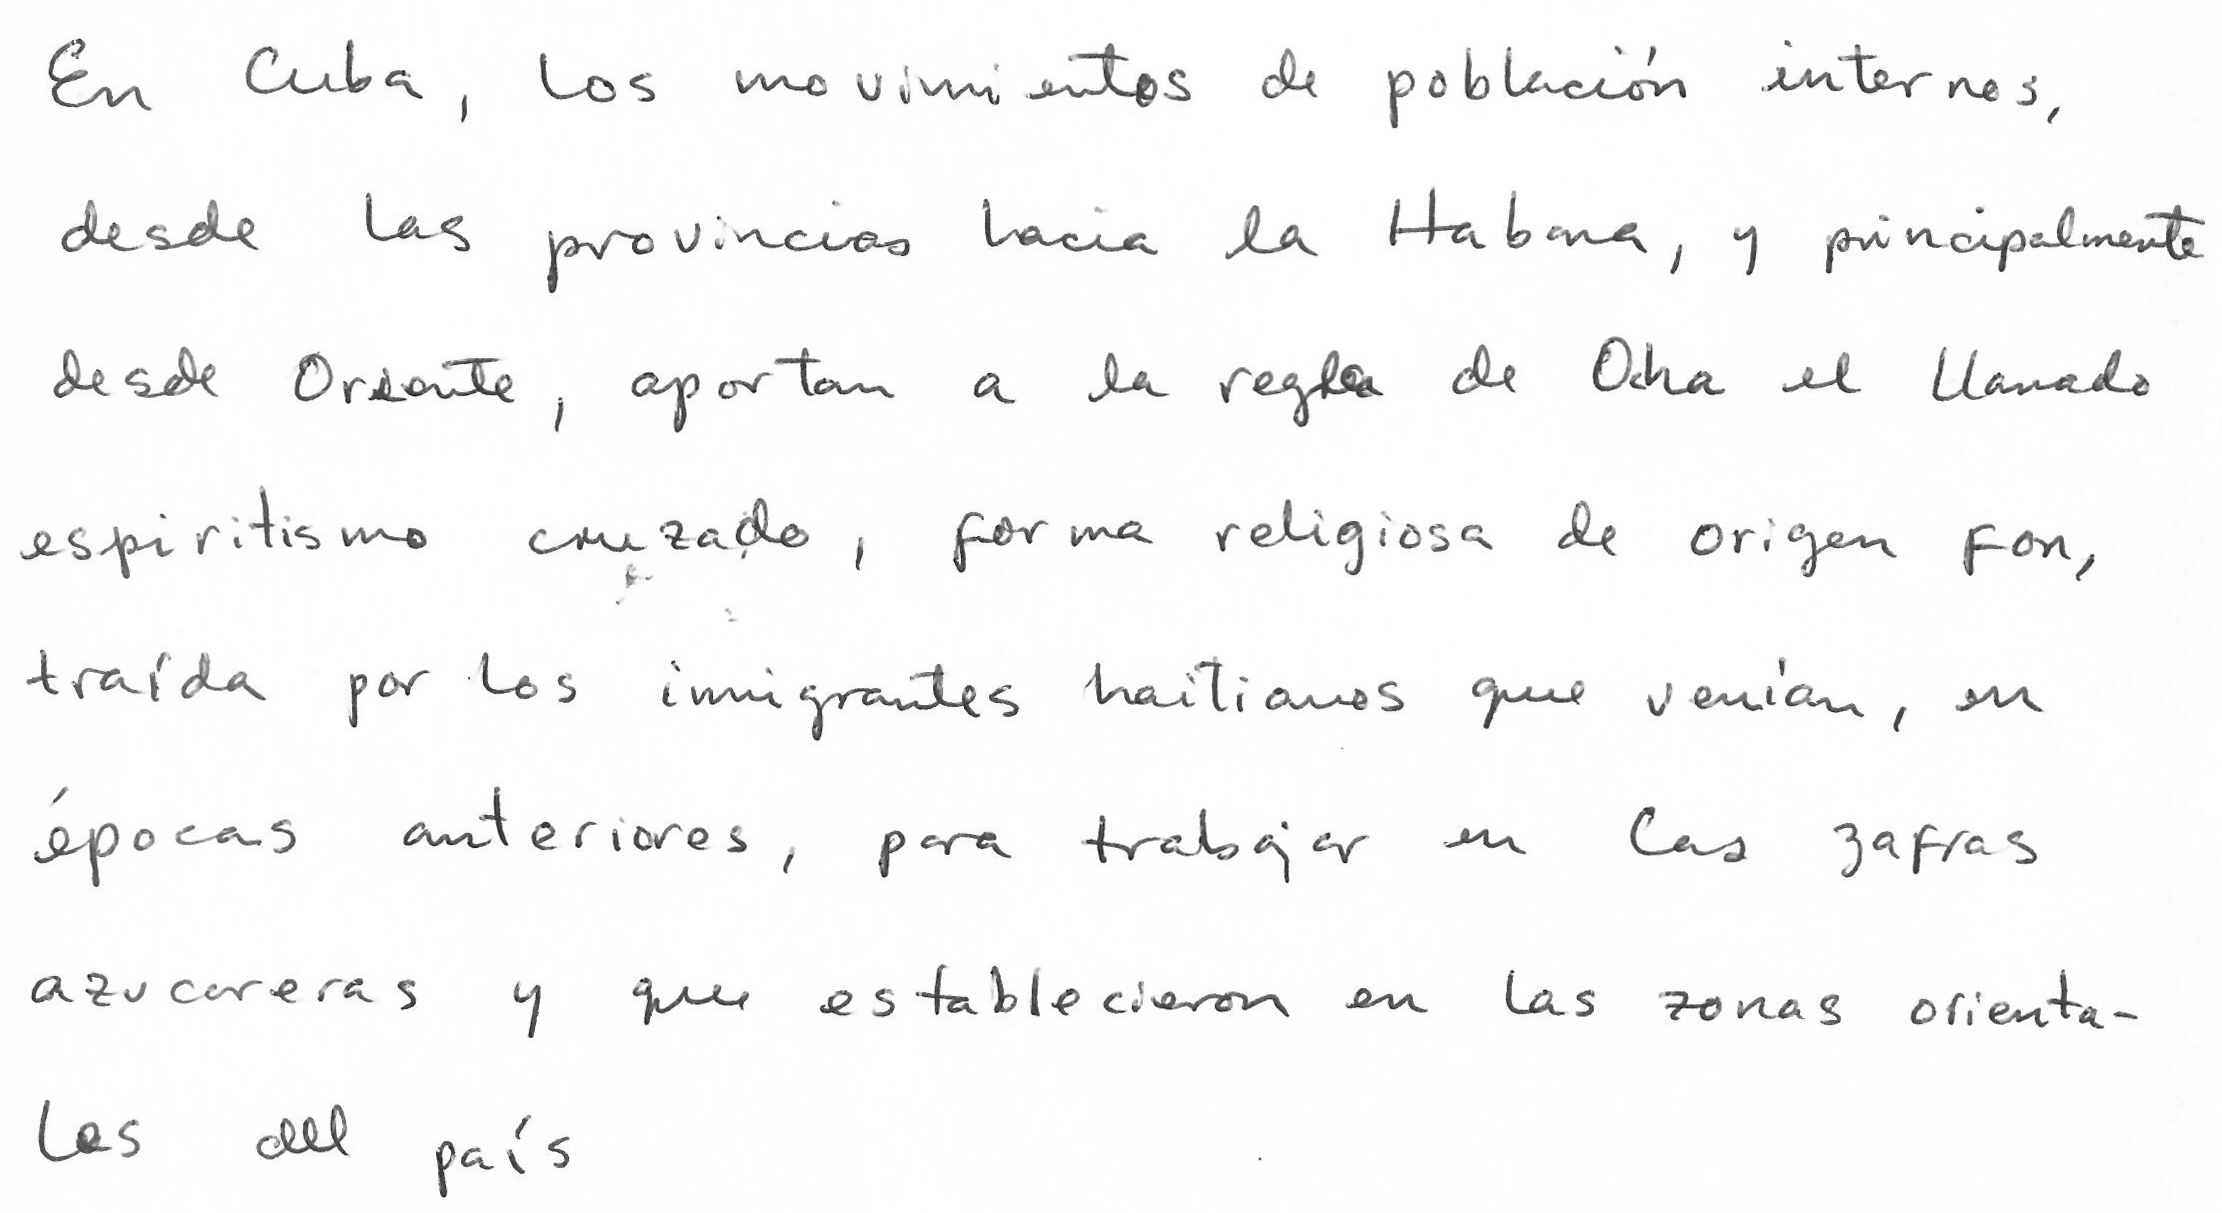 En Cuba, los movimientos de población internos,
desde las provincias hacia la Habana, y principalmente
desde Oriente, aportan a la regla de Ocha el llamado
espiritismo cruzado, forma religiosa de origen Fon,
traída por los inmigrantes haitianos que venían, en
épocas anteriores, para trabajar en las zafras
azucareras y que establecieron en las zonas orienta-
les del país